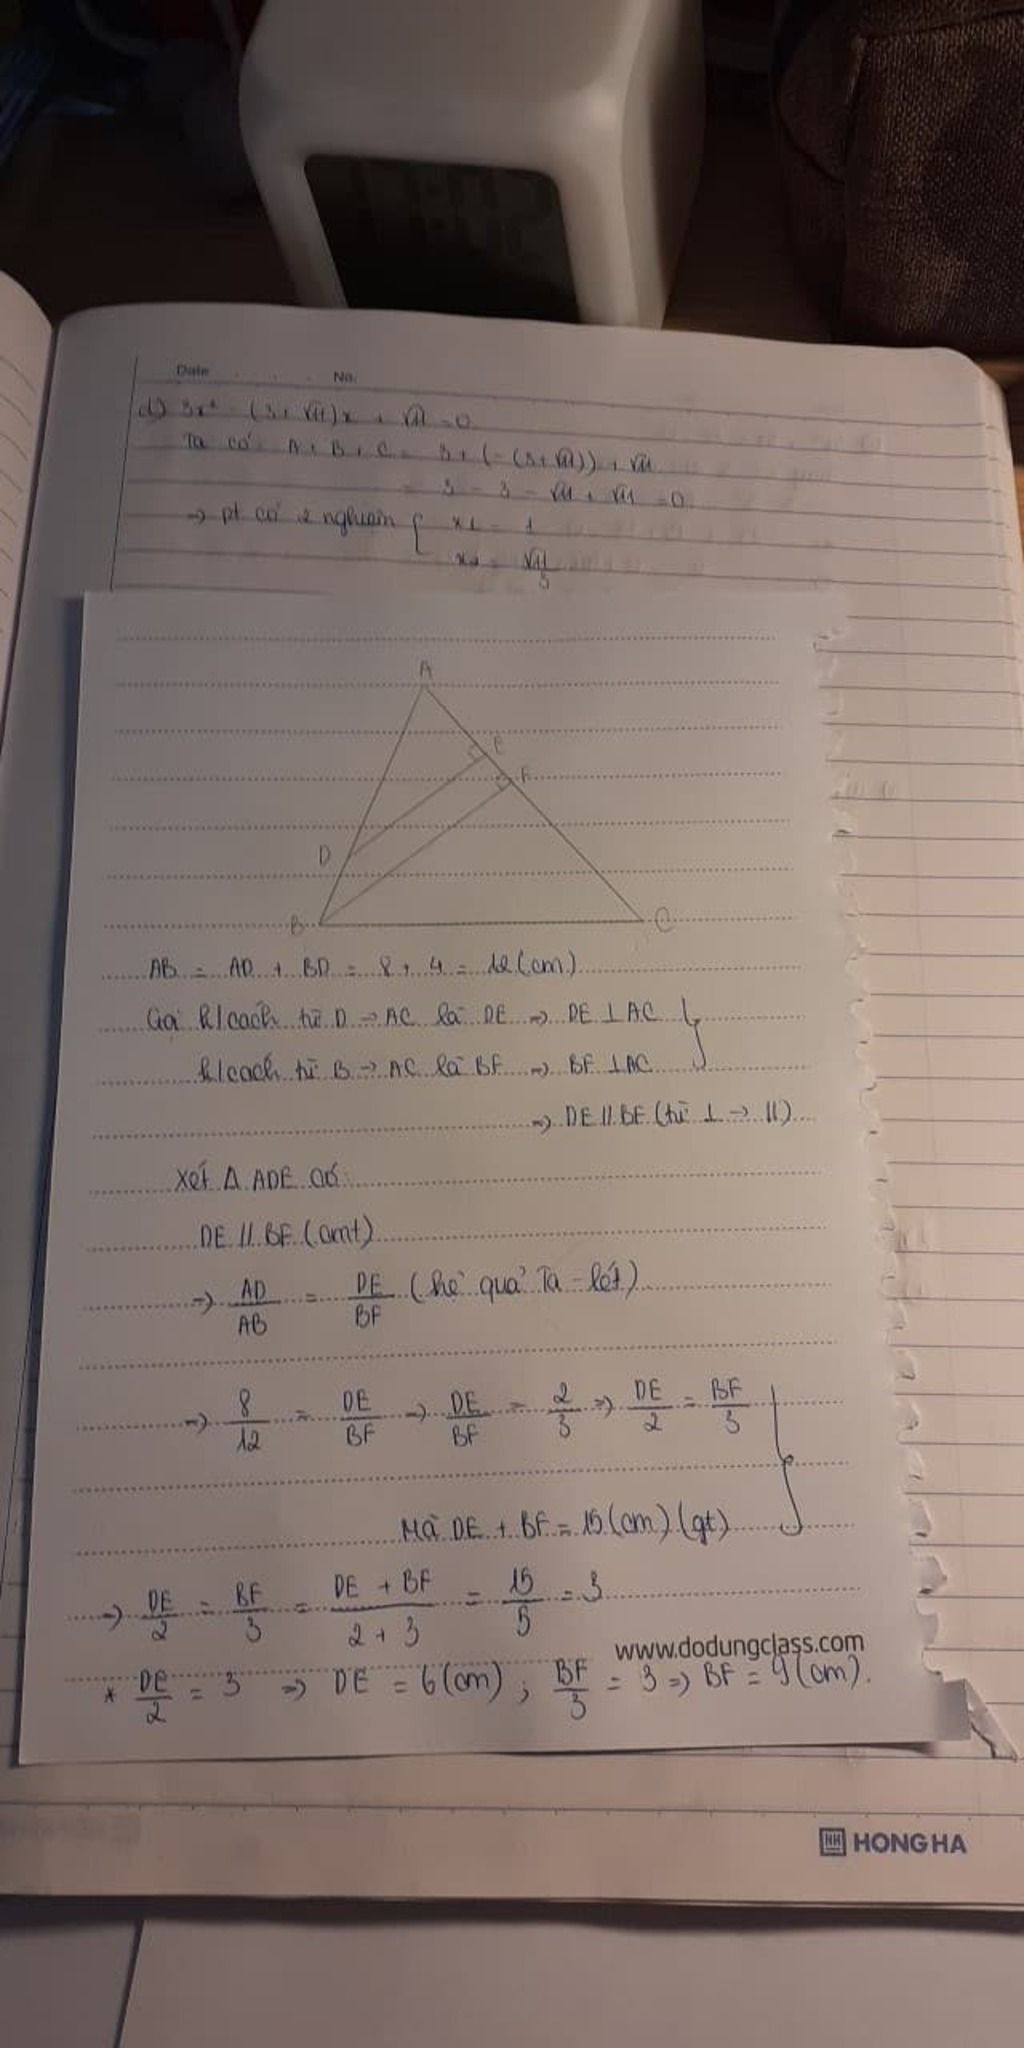 Date No.
d) 3x² - (3+√11)x + √11 = 0
Ta có: A + B + C = 3 + (-(3+√11)) + √11
= 3 - 3 - √11 + √11 = 0
=> pt có 2 nghiệm { x1 = 1
x2 = √11/3
A
E
F
D
B
C
AB = AD + BD = 8 + 4 = 12 (cm)
Gọi k/cách từ D -> AC là DE => DE ⊥ AC }
k/cách từ B -> AC là BF => BF ⊥ AC
=> DE // BF (từ ⊥ -> //)
Xét Δ ADE có:
DE // BF (cmt)
=> AD/AB = DE/BF (hệ quả Ta-lét)
=> 8/12 = DE/BF => DE/BF = 2/3 => DE/2 = BF/3
Mà DE + BF = 15 (cm) (gt)
=> DE/2 = BF/3 = (DE + BF)/(2 + 3) = 15/5 = 3
www.dodungclass.com
* DE/2 = 3 => DE = 6 (cm) ; BF/3 = 3 => BF = 9 (cm).
HH HONG HA